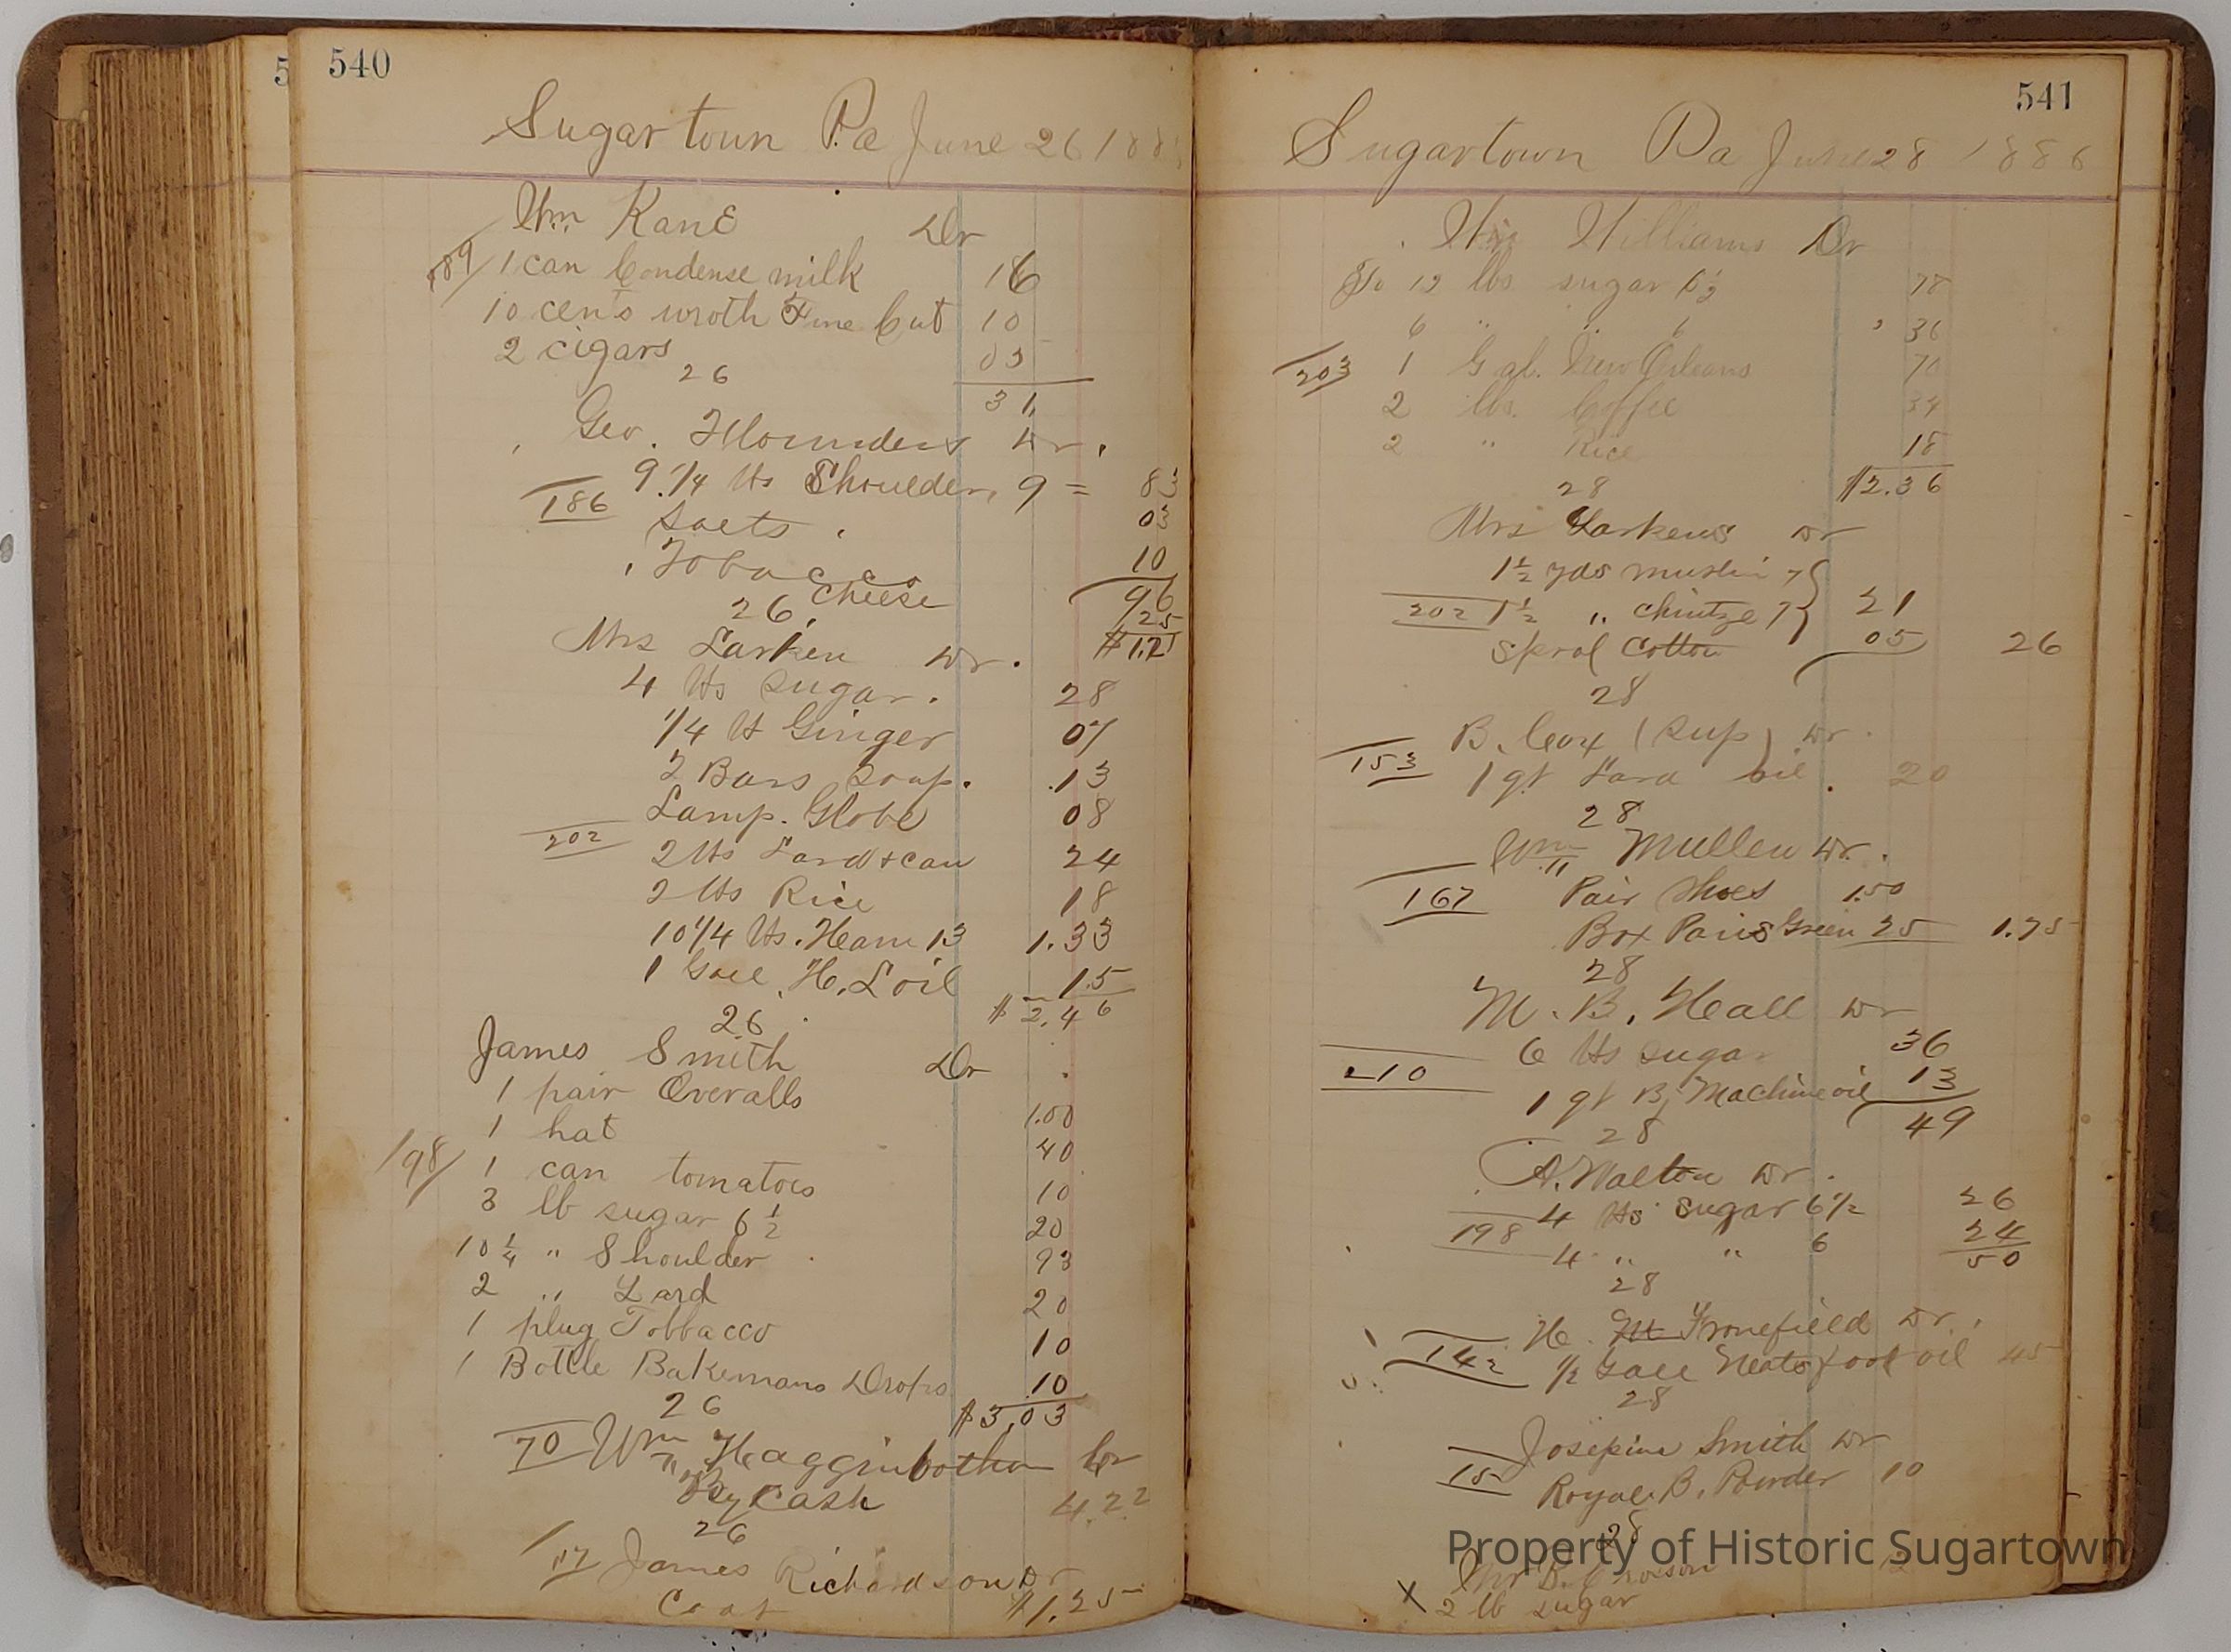 5
540
Sugartown Pa June 26 188
Wm Kane Dr
189 1 can Condense milk 16
10 cents wroth Fine Cut 10
2 cigars 05
26
31
Geo. Flounders Dr.
9.1/4 lbs Shoulder, 9 = 83
186
Salts 03
Tobacco 10
Cheese 96
26 25
$1.21
Mrs Larken Dr.
4 lbs sugar. 28
1/4 lb Ginger 07
2 Bars Soap. .13
Lamp. Globe 08
202
2 lbs Lard & can 24
2 lbs Rice 18
10 1/4 lbs. Ham 13 1.33
1 Gall. H. L oil 15
$2.46
26
James Smith Dr
1 pair Overalls 1.00
1 hat 40
198 1 can tomatoes 10
3 lb sugar 6 1/2 20
10 1/4 " Shoulder 93
2 " Lard 20
1 plug Tobbacco 10
1 Bottle Bakemans Drops 10
26 $3.03
70 Wm Hagginbotham Cr
By Cash 4.22
26
117 James Richardson Dr
Coat $1.25
541
Sugartown Pa June 28 1886
Williams Dr
To 12 lbs sugar 6 1/2 78
6 " " 6 36
203 1 Gal. New Orleans 70
2 lbs. Coffee 34
2 " Rice 18
28 $2.36
Mrs Larkens Dr
1 1/2 yds muslin 7
202 1 1/2 " chintze 7 21
Spool Cotton 05 26
28
B. Cox (Sup) Dr.
153 1 qt Lard oil. 20
28
Wm Mullen Dr.
167 Pair Shoes 1.50
Box Paris Green 25 1.75
28
M. B. Hall Dr
6 lbs sugar 36
210
1 qt B, Machine oil 13
28 49
A. Walton Dr.
4 lbs Sugar 6 1/2 26
198 4 " " 6 24
50
28
H. M Fronefield Dr.
142 1/2 Gall Neats foot oil 45
28
Josepine Smith Dr
15 Royal B. Powder 10
28
Property of Historic Sugartown
X 2 lb sugar